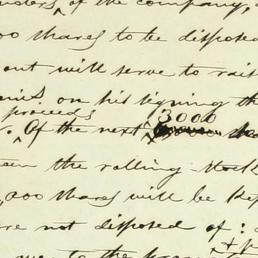 of the company,
00 shares to be disposed
out will serve to rais
on his signing th
proceeds
13000
Of the next
een the rolling stock
,000 shares will be kep
re not disposed of :
to the